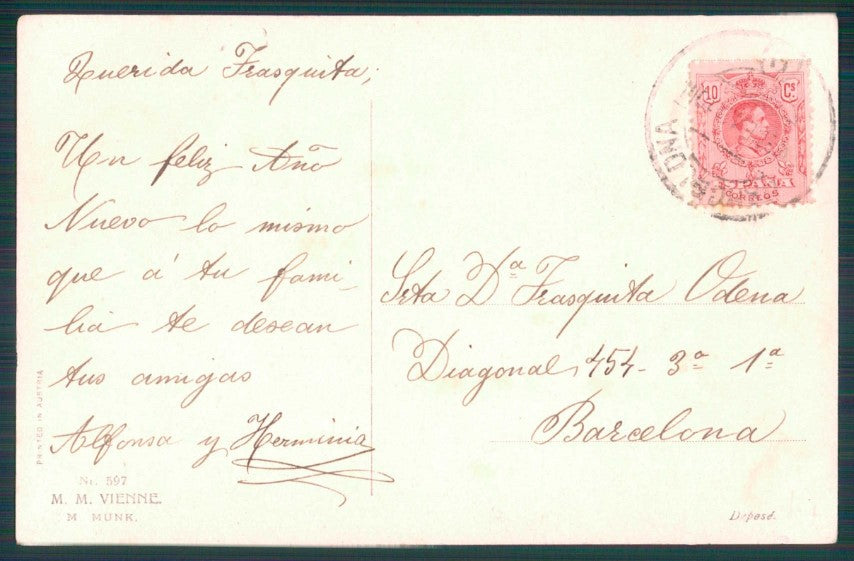 Querida Frasquita;
Un feliz Año
Nuevo lo mismo
que á tu fami-
lia te desean
tus amigas
Alfonsa y Herminia
PRINTED IN AUSTRIA
Nr. 597
M. M. VIENNE.
M. MUNK.
10 Cs
ESPAÑA
CORREOS
Srta Dª Frasquita Odena
Diagonal, 454- 3ª 1ª
Barcelona
Deposé.